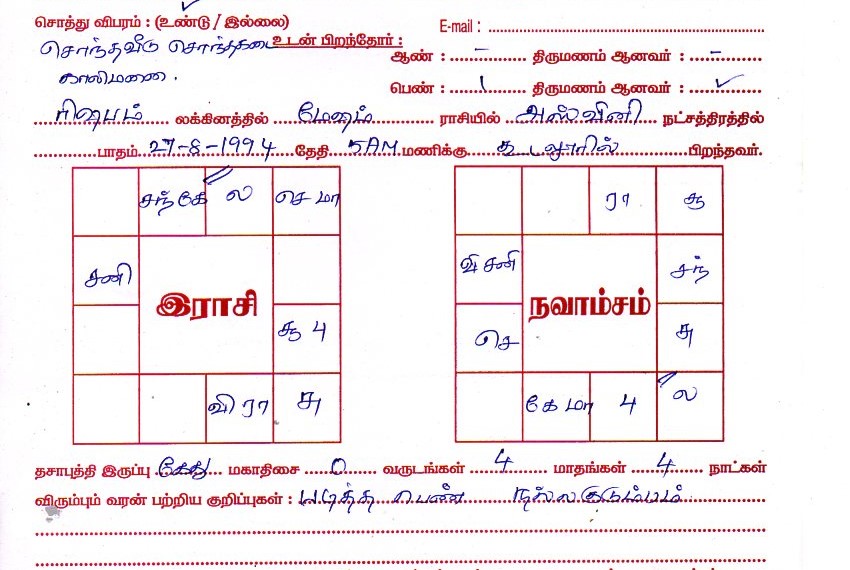 சொத்து விபரம் : (உண்டு / இல்லை)
E-mail :
சொந்தவீடு சொந்தகடை உடன் பிறந்தோர் :
காலிமனை.
ஆண் : – திருமணம் ஆனவர் : –
பெண் : 1 திருமணம் ஆனவர் : ✓
ரிஷபம் லக்கினத்தில் மேஷம் ராசியில் அஸ்வினி நட்சத்திரத்தில்
பாதம் 27-8-1994 தேதி 5AM மணிக்கு கடலூரில் பிறந்தவர்.
சந்கே ல செ மா
ரா சூ
சனி
வி சனி சந்
இராசி
நவாம்சம்
சூ 4
செ சு
வி ரா சு
கே மா 4 ல
தசாபுத்தி இருப்பு கேது மகாதிசை 0 வருடங்கள் 4 மாதங்கள் 4 நாட்கள்
விரும்பும் வரன் பற்றிய குறிப்புகள் : படித்த பெண் நல்லகுடும்பம்